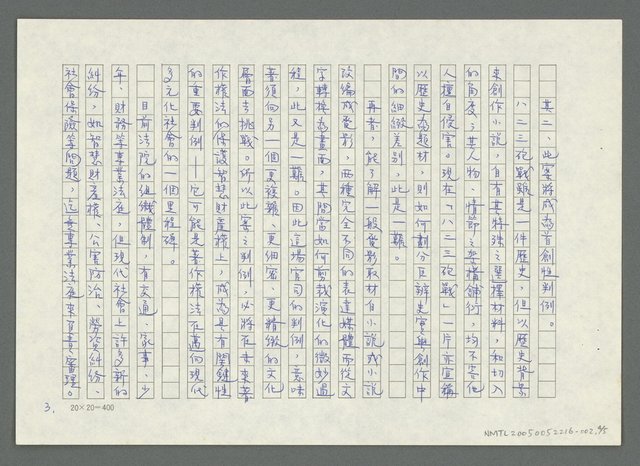 其二、此案將成為首創性判例。
八二三砲戰雖是一件歷史，但以歷史背景
來創作小說，自有其特殊之選擇材料，和切入
的角度；其人物、情節之架構舖衍，均不容他
人擅自侵害。現在「八二三砲戰」一片亦宣稱
以歷史為題材，則如何劃分及辨史實與創作中
間的細緻差別，此是一難。
再者，能了解一般電影取材自小說或小說
改編成電影，兩種完全不同的表達媒體而從文
字轉換為畫面，其間當如何剪裁演化的微妙過
程，此又是一難。因此這場官司的判例，意味
著須向另一個更複雜、更細密、更精緻的文化
層面去挑戰。所以此案之判例，必將在未來著
作權法的保護智慧財產權上，成為具有關鍵性
的重要判例——它可能是著作權法在邁向現代
多元化社會的一個里程碑。
目前法院的組織體制，有交通、家事、少
年、財務等專業法庭，但現代社會上許多新的
糾紛，如智慧財產權、公害防治、勞資糾紛、
社會保險等問題，迄無專業法庭來負責審理。
3.
20×20=400
NMTL20050052216-002